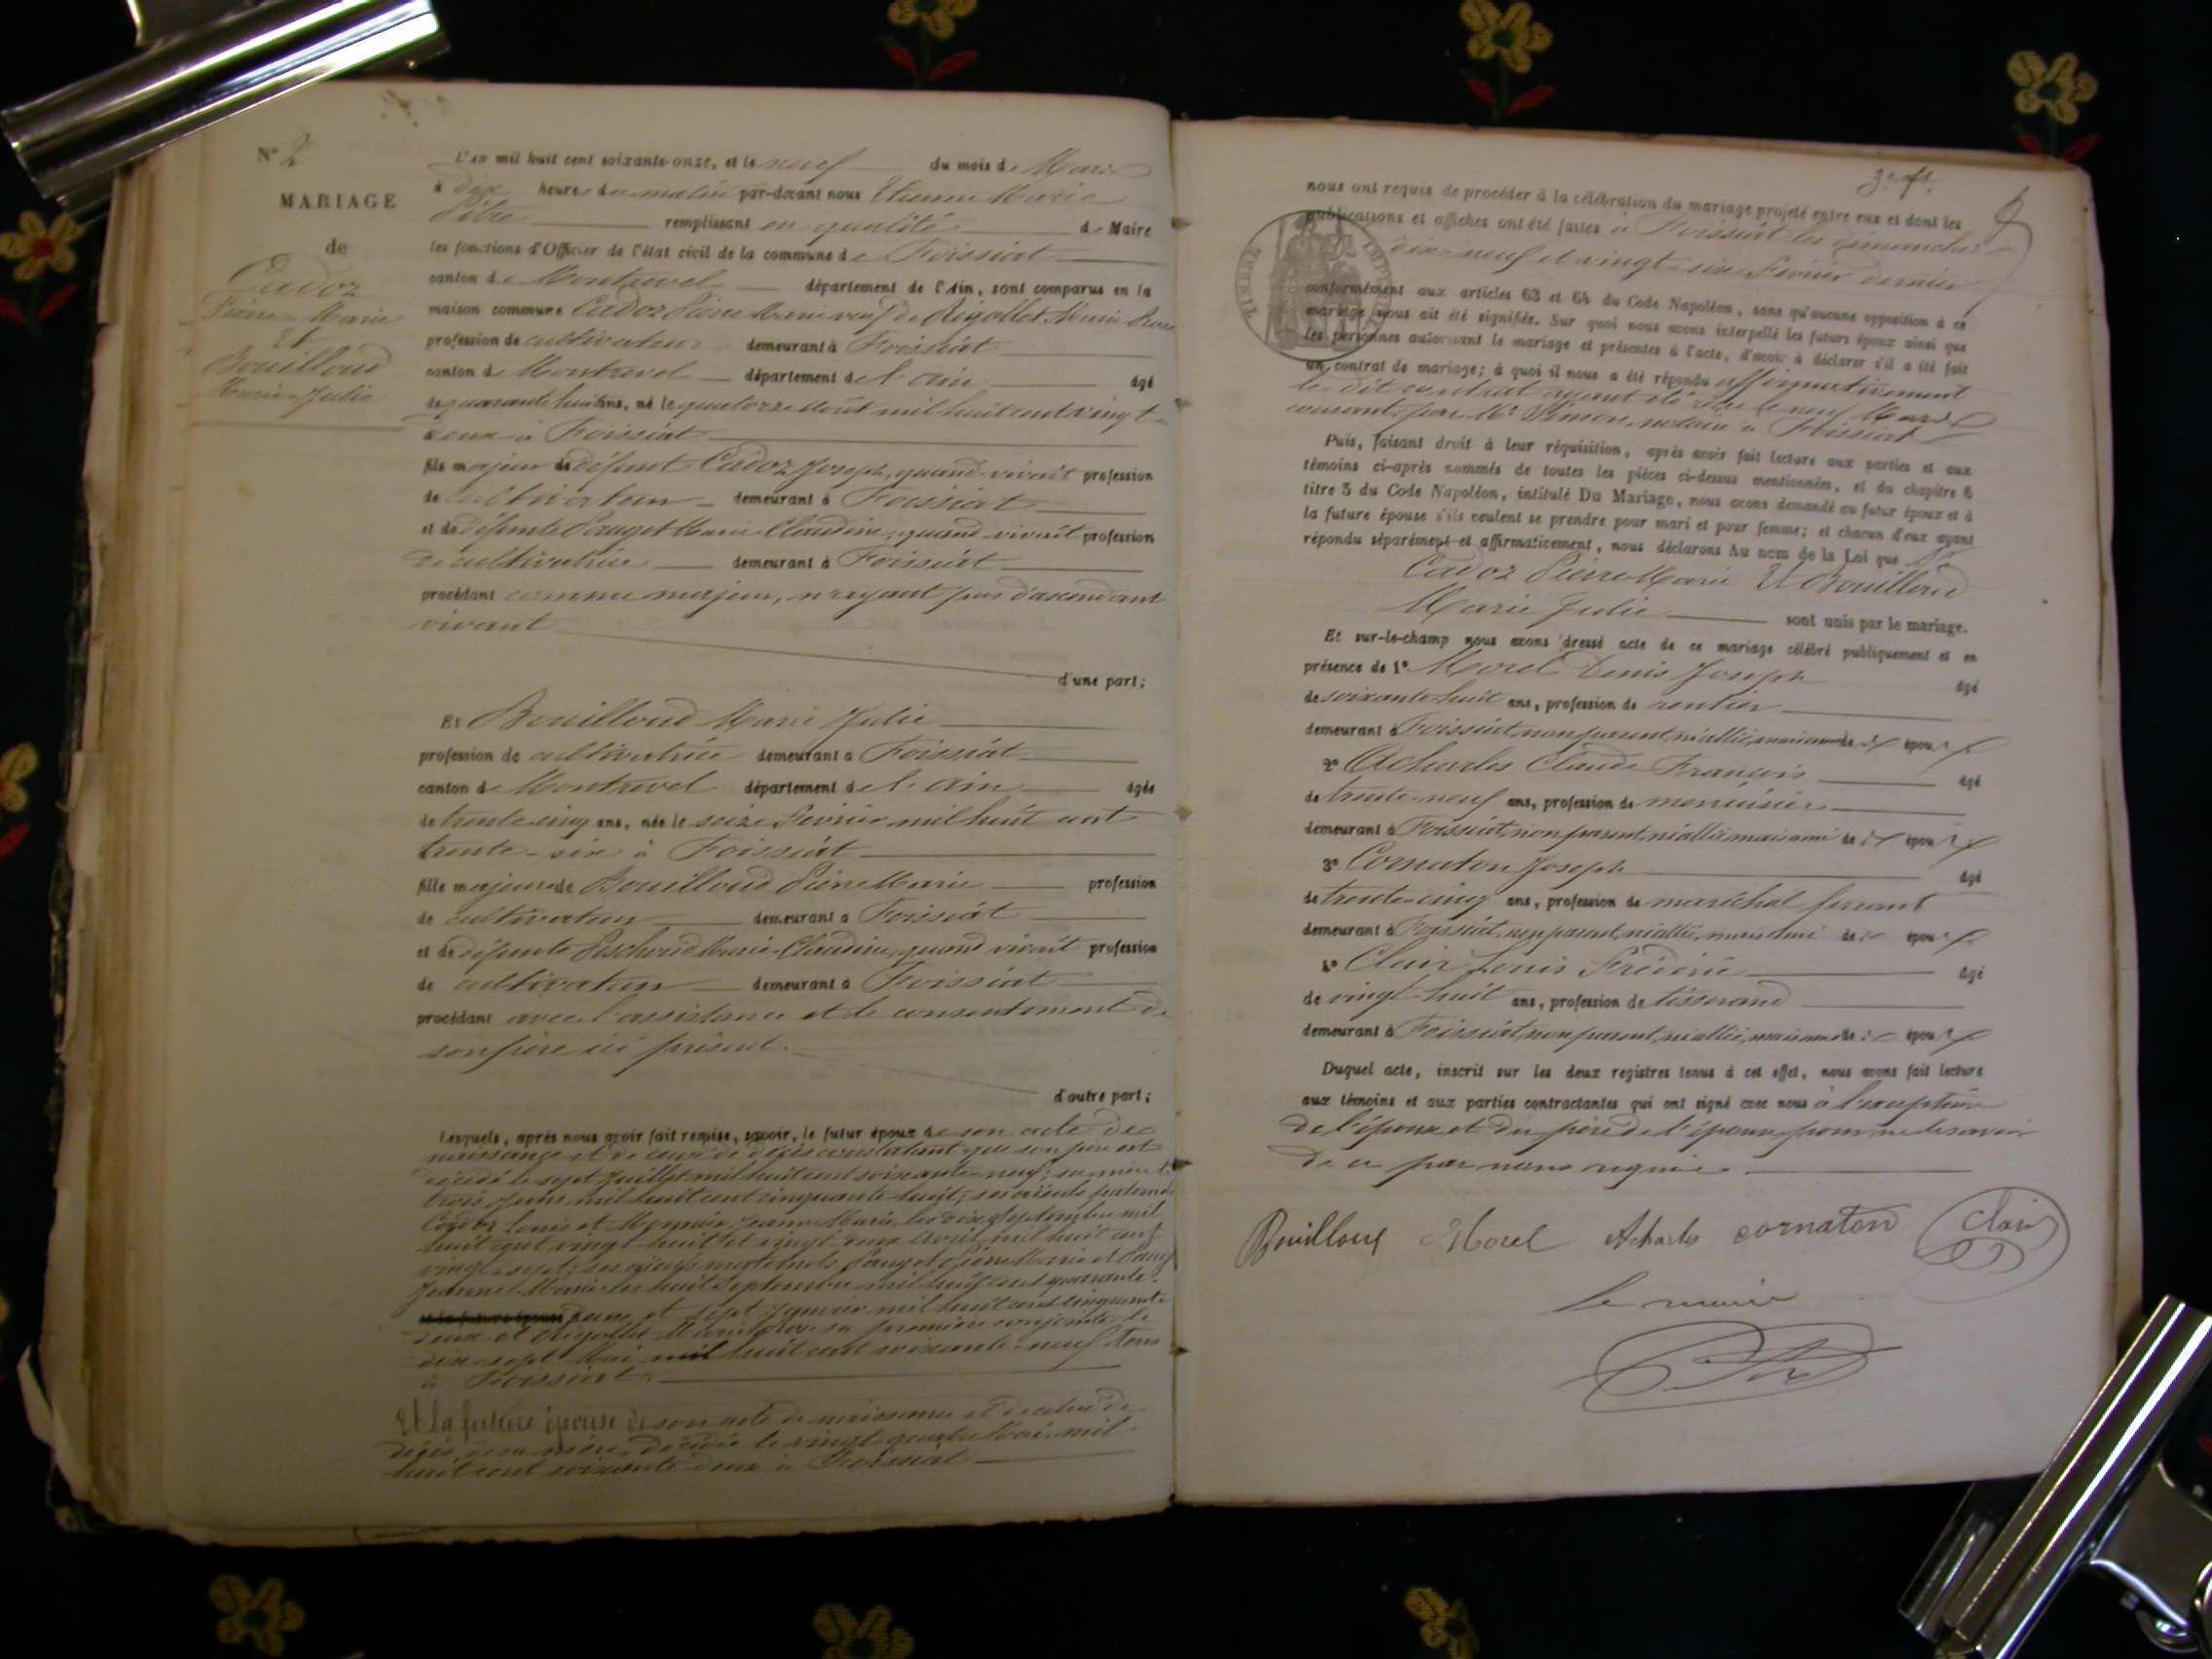 N° 2
MARIAGE
de
Cadoz
Pierre-Marie
Et
Bouilloud
Marie-Julie
L'an mil huit cent soixante-onze, et le neuf du mois de Mars
à dix heures du matin par-devant nous Etienne Marie
remplissant en qualité de Maire
les fonctions d'Officier de l'état civil de la commune de Foissiat
canton de Montrevel département de l'Ain, sont comparus en la
maison commune Cadoz Pierre Marie veuf de Rigollet Marie
profession de cultivateur demeurant à Foissiat
canton de Montrevel département de l'ain âgé
de quarante huit ans, né le quatorze Août mil huit cent vingt-
deux à Foissiat
fils majeur de défunt Cadoz Joseph, quand vivait profession
de cultivateur demeurant à Foissiat
et de défunte Pauget Marie-Claudine, quand vivait profession
de cultivatrice demeurant à Foissiat
procédant comme majeur, n'ayant pas d'ascendant
vivant
d'une part;
Et Bouilloud Marie Julie
profession de cultivatrice demeurant à Foissiat
canton de Montrevel département de l'ain âgée
de trente-cinq ans, née le seize Février mil huit cent
trente-six à Foissiat
fille majeure de Bouilloud Pierre Marie profession
de cultivateur demeurant à Foissiat
et de défunte Marie-Claudine, quand vivait profession
de cultivateur demeurant à Foissiat
procédant avec l'assistance et le consentement de
son père ici présent.
d'autre part;
Lesquels, après nous avoir fait remise, savoir, le futur époux de son acte de
naissance et de ceux de décès constatant que son père est
décédé le sept Juillet mil huit cent soixante-neuf; sa mère le
trois Juin mil huit cent cinquante huit; ses aïeuls paternels
Cadoz Louis et Jeanne Marie, les dix Septembre mil
huit cent vingt-huit et vingt deux avril mil huit cent
vingt-sept; ses aïeuls maternels Pauget Pierre Marie et
Jeanne-Marie les huit Septembre mil huit cent quarante-
deux et sept Janvier mil huit cent cinquante
deux et Rigollet Marie sa première conjointe le
dix-sept Mai mil huit cent soixante-neuf tous
à Foissiat.
Et la future épouse de son acte de naissance et de celui de
décès de sa mère, décédée le vingt-quatre Mai mil
huit cent soixante deux à Foissiat
3e ft.
nous ont requis de procéder à la célébration du mariage projeté entre eux et dont les
publications et affiches ont été faites à Foissiat les dimanches
dix-neuf et vingt-six Février dernier
TIMBRE IMPÉRIAL
conformément aux articles 63 et 64 du Code Napoléon, sans qu'aucune opposition à ce
mariage nous ait été signifiée. Sur quoi nous avons interpellé les futurs époux ainsi que
les personnes autorisant le mariage et présentes à l'acte, d'avoir à déclarer s'il a été fait
un contrat de mariage; à quoi il nous a été répondu affirmativement
le dit contrat ayant été reçu le neuf Mars
courant par Me notaire à Foissiat
Puis, faisant droit à leur réquisition, après avoir fait lecture aux parties et aux
témoins ci-après nommés de toutes les pièces ci-dessus mentionnées, et du chapitre 6
titre 5 du Code Napoléon, intitulé Du Mariage, nous avons demandé au futur époux et à
la future épouse s'ils veulent se prendre pour mari et pour femme; et chacun d'eux ayant
répondu séparément et affirmativement, nous déclarons Au nom de la Loi que
Cadoz Pierre Marie Et Bouilloud
Marie Julie sont unis par le mariage.
Et sur-le-champ nous avons dressé acte de ce mariage célébré publiquement et en
présence de 1° Morel Denis Joseph âgé
de soixante-huit ans, profession de rentier
demeurant à Foissiat, non parent, ni allié, mais ami des époux
2° Acharles Claude François âgé
de trente-neuf ans, profession de menuisier
demeurant à Foissiat, non parent, ni allié mais ami des époux
3° Cornaton Joseph âgé
de trente-cinq ans, profession de maréchal ferrant
demeurant à Foissiat, non parent, ni allié, mais ami des époux
4° Clair Louis Frédéric âgé
de vingt-huit ans, profession de tisserand
demeurant à Foissiat, non parent, ni allié, mais ami des époux
Duquel acte, inscrit sur les deux registres tenus à cet effet, nous avons fait lecture
aux témoins et aux parties contractantes qui ont signé avec nous à l'exception
de l'époux et du père de l'épouse pour ne le savoir
de ce par nous requis.
Bouilloud Morel Acharles cornaton Clair
Le maire